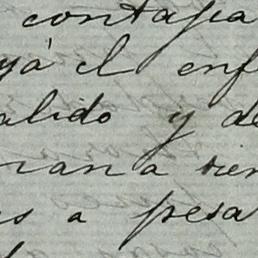 contagia
yá el enf
alido y de
man a sien
s a pesa